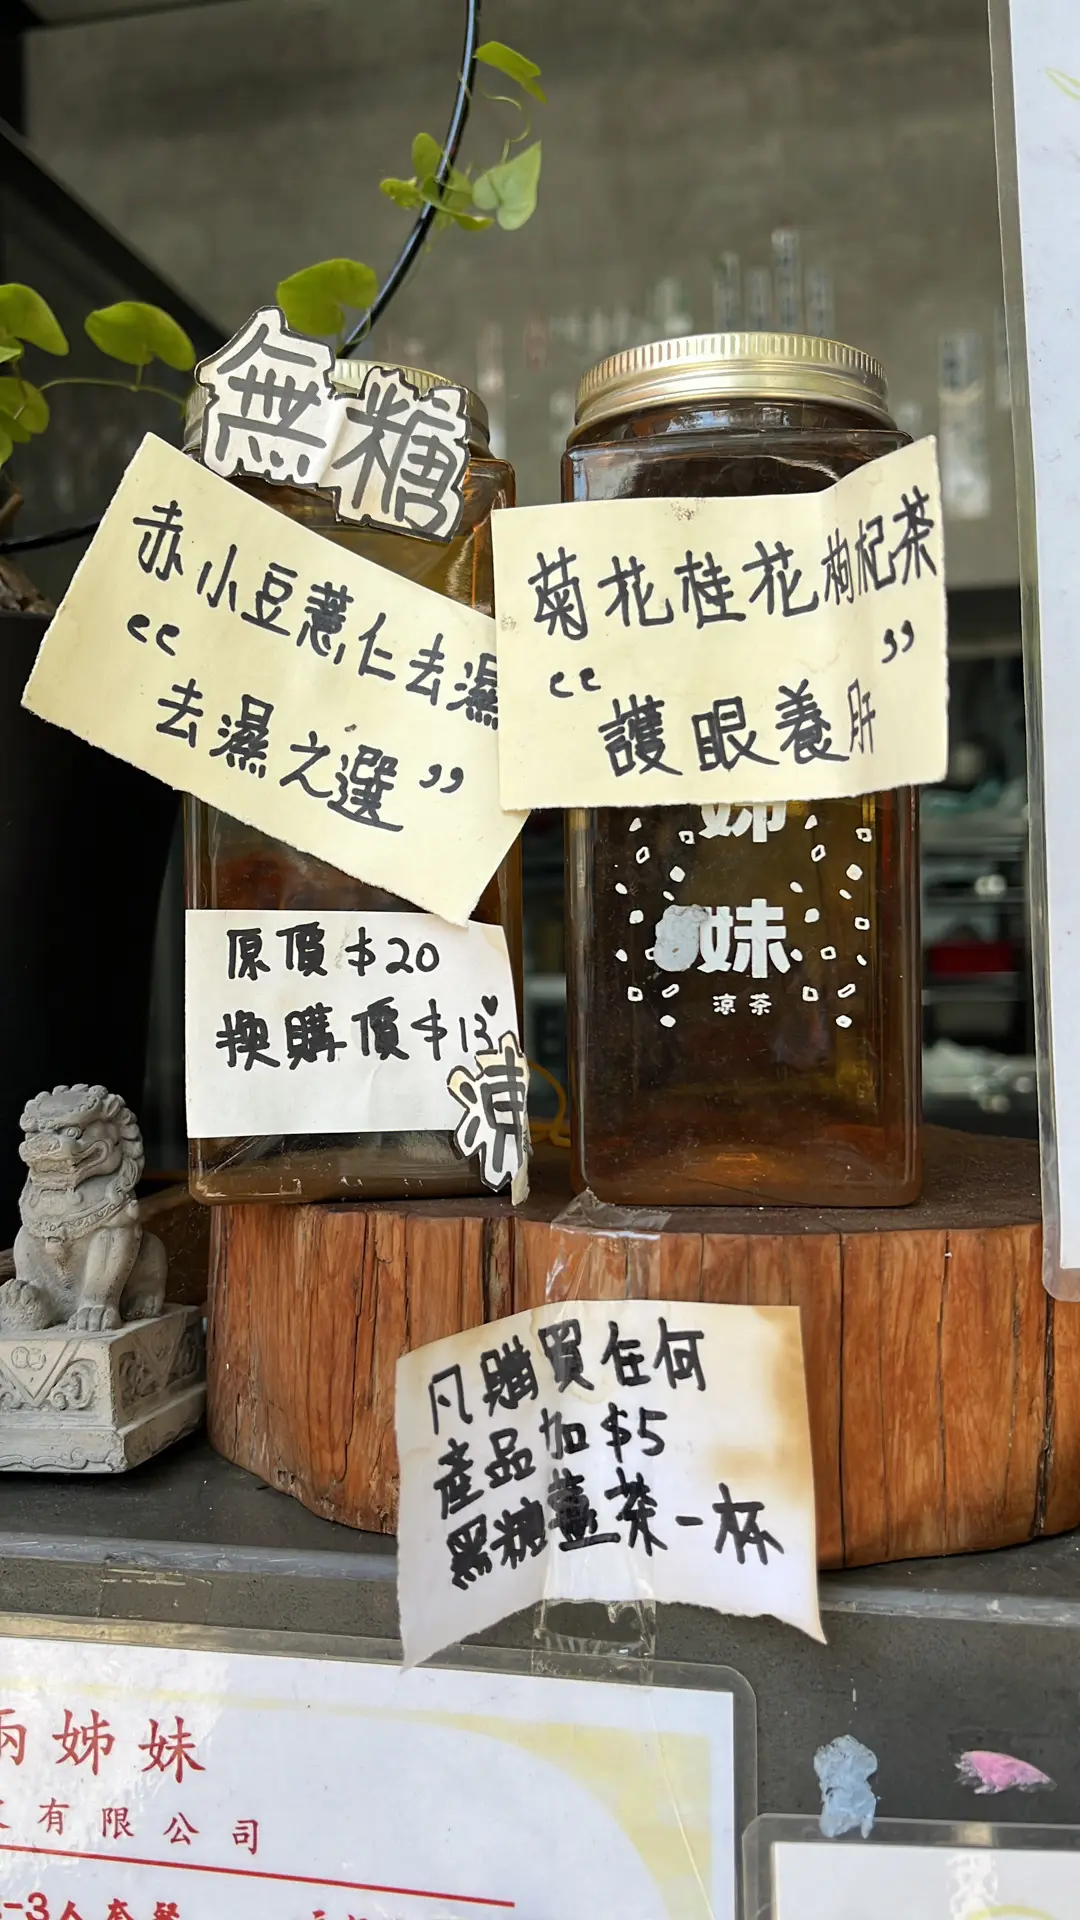 無糖
赤小豆薏仁去濕
“去濕之選”
菊花桂花枸杞茶
“護眼養肝”
原價$20
換購價$13
凍
姊
妹
涼茶
凡購買任何
產品加$5
黑糖薑茶一杯
兩姊妹
有限公司
-3人套餐